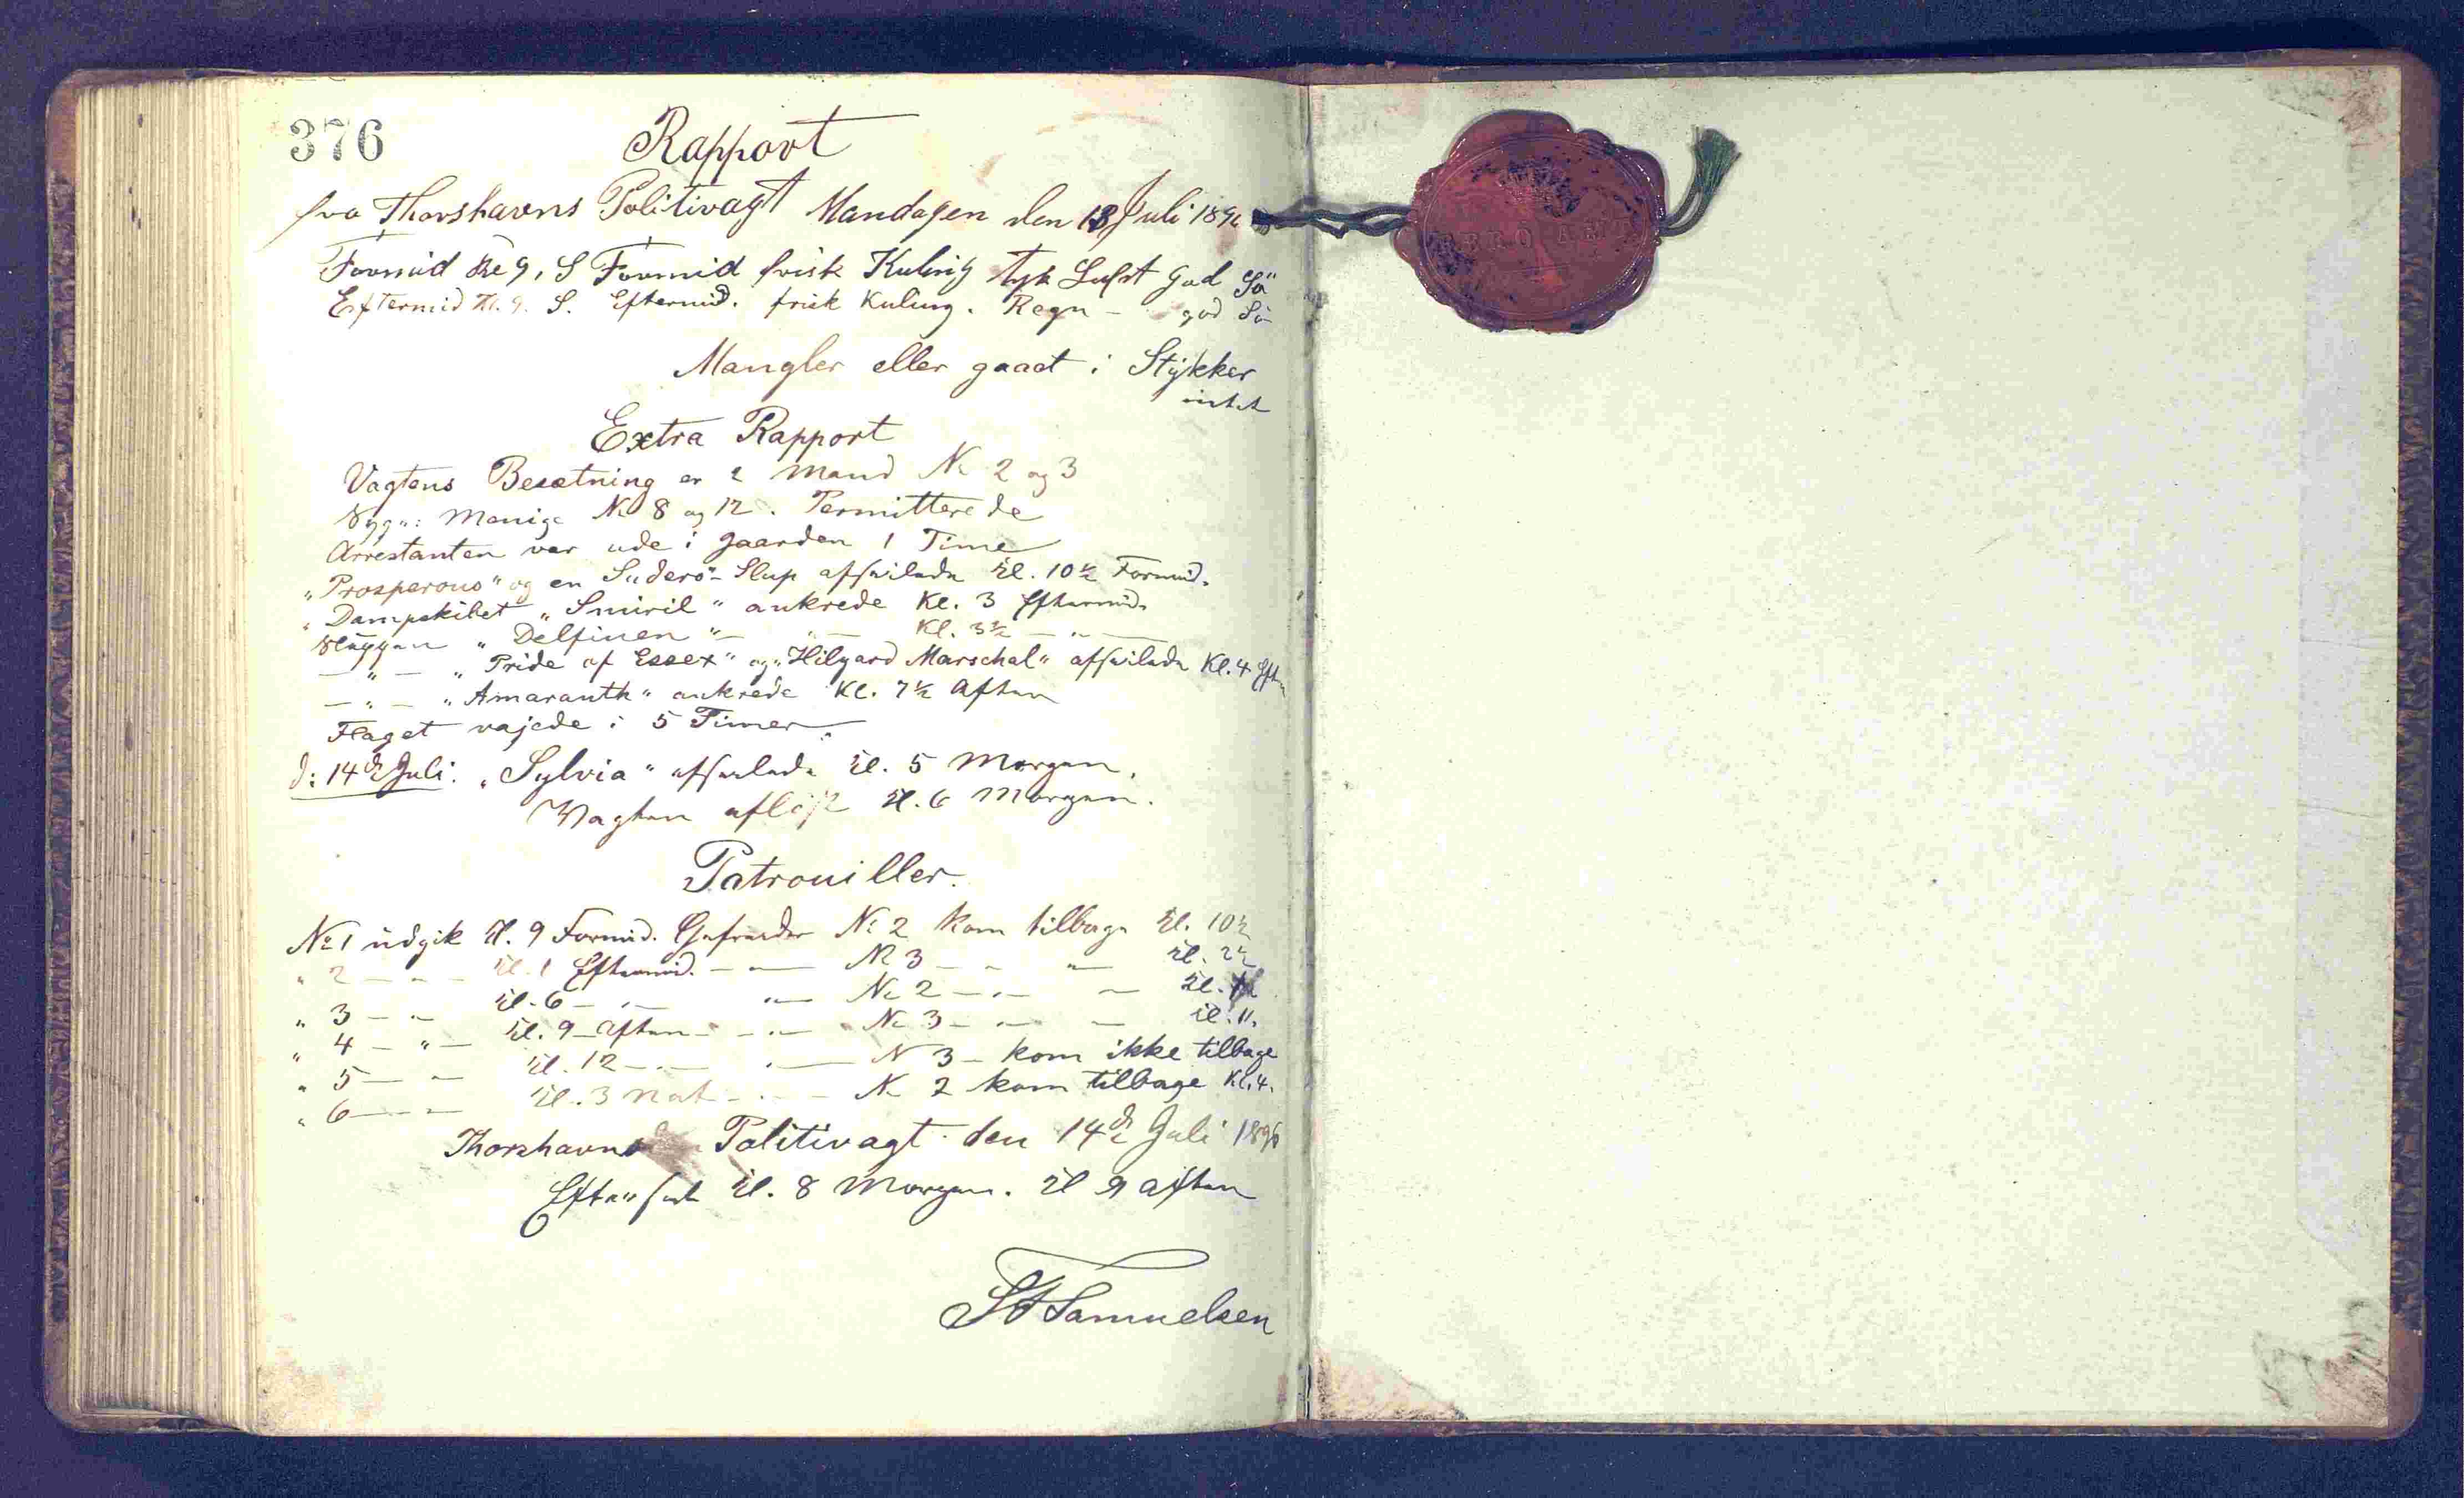 376
Rapport
fra Thorshavns Politivagt Mandagen den 13 Juli 1896
Formid Kl 9, S Formid frisk Kuling tyk Luft god Sö
Eftermid Kl. 9. S. Eftermid. frisk Kuling. Regn - god Sö
Mangler eller gaaet i Stykker
intet
Extra Rapport
Vagtens Besætning er 2 Mand No 2 og 3
Syge: Menige No 8 og 12. Permitterede
Arrestanten var ude i Gaarden 1 Time
„Prosperous" og en Suderö-Slup afseilede Kl. 10½ Formid.
Dampskibet „Smiril" ankrede Kl. 3 Eftermid.
Sluppen „Delfinen" — „ — Kl. 3½ — „ —
— „ — „Pride of Essex" og „Hilyard Marschal" afseilede Kl. 4 Eftm
— „ — „Amaranth" ankrede Kl. 7½ Aften
Flaget vajede i 5 Timer
d: 14de Juli. „Sylvia" afseilede Kl. 5 Morgen.
Vagten aflöst Kl. 6 Morgen.
Patrouiller.
No 1 udgik Kl. 9 Formid. Gefreider No 2 kom tilbage Kl. 10½
„ 2 — „ — Kl. 1 Eftermid. — „ — No 3 — „ — „ — Kl. 2½
„ 3 — „ — Kl. 6 — „ — „ — No 2 — „ — „ — Kl.
„ 4 — „ — Kl. 9 Aften — „ — No 3 — „ — „ — Kl. 11.
„ 5 — „ — Kl. 12 — „ — „ — N 3 - kom ikke tilbage
„ 6 — „ — Kl. 3 Nat — „ — No 2 kom tilbage Kl. 4.
Thorshavns Politivagt den 14de Juli 1896
Kl. 8 Morgen. Kl 9 Aften
Samuelsen
FÆRÖ AMT